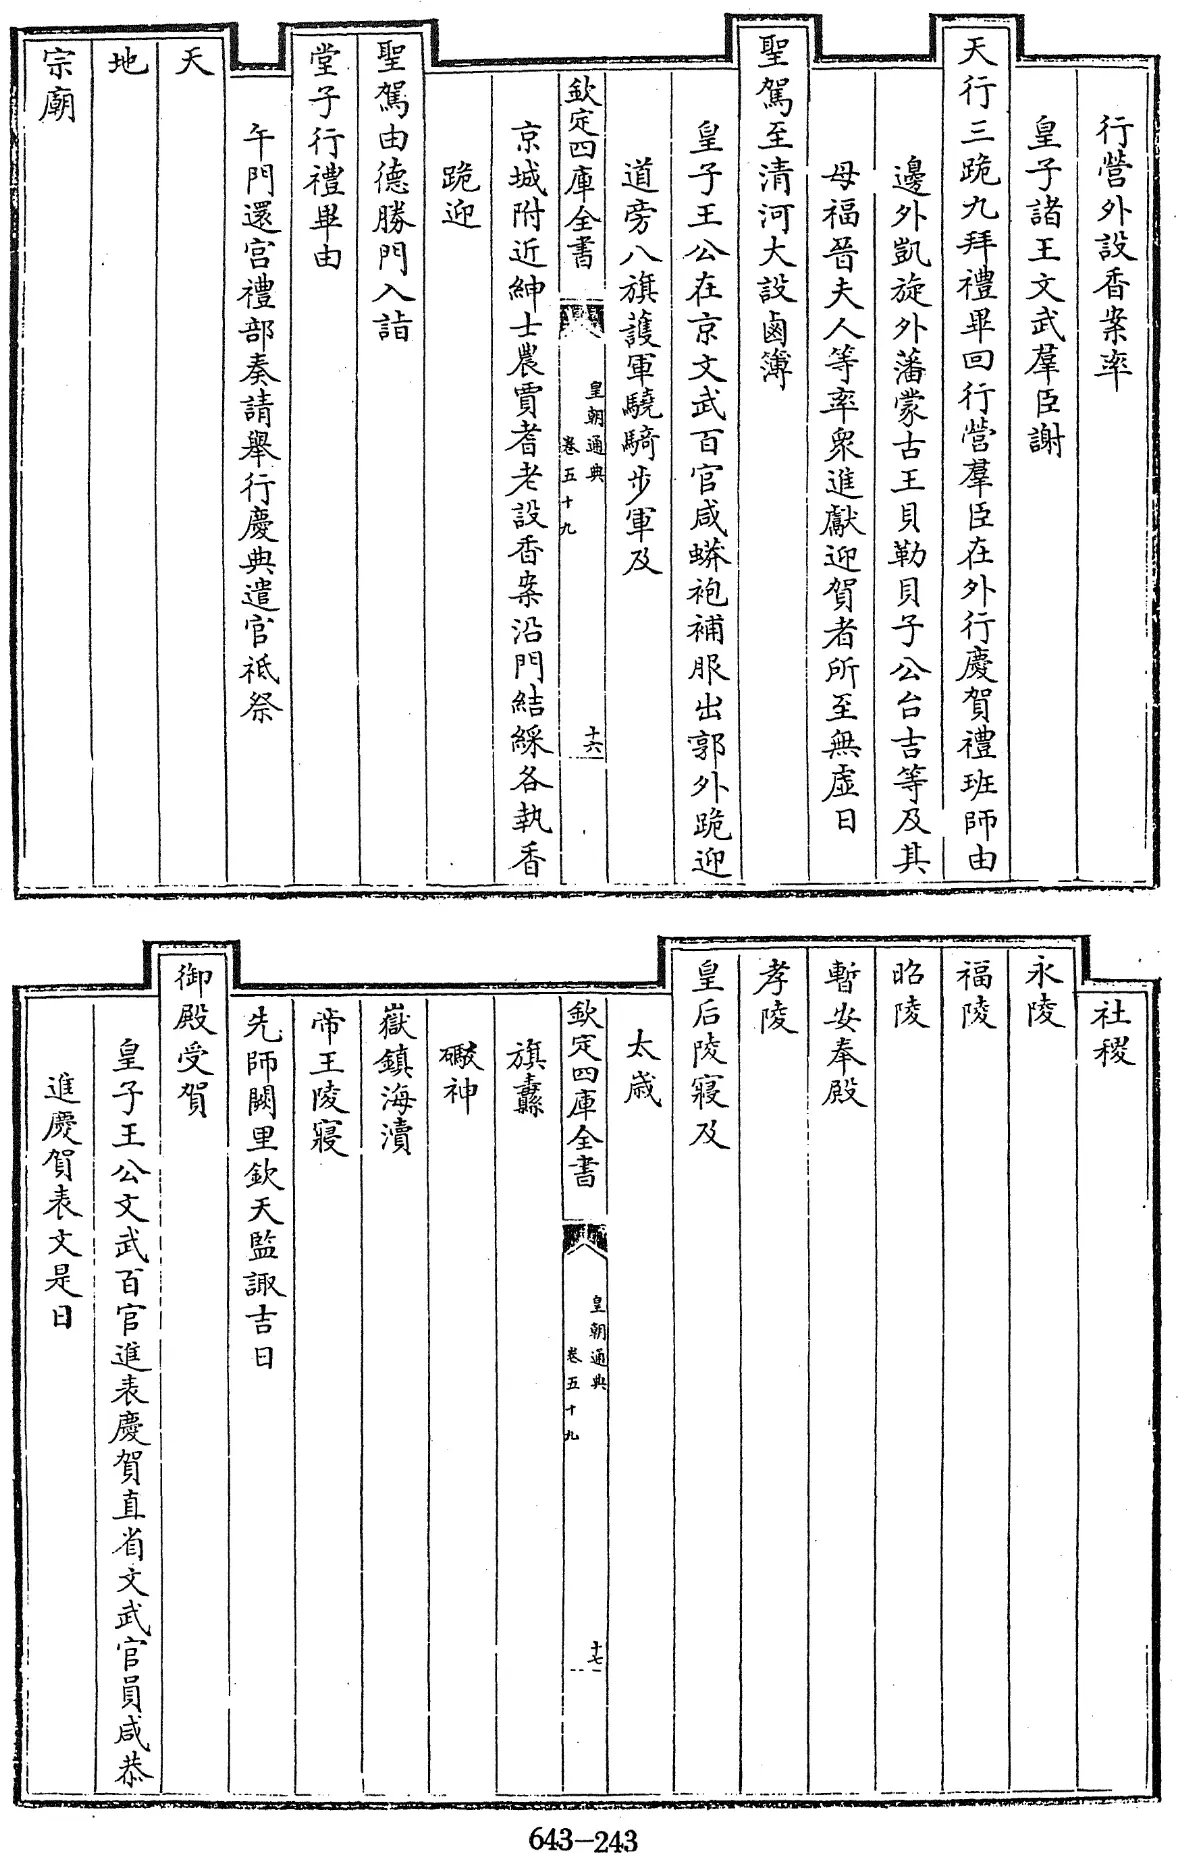 行營外設香案率
皇子諸王文武羣臣謝
天行三跪九拜禮畢回行營羣臣在外行慶賀禮班師由
邊外凱旋外藩蒙古王貝勒貝子公台吉等及其
母福晉夫人等率衆進獻迎賀者所至無虛日
聖駕至清河大設鹵簿
皇子王公在京文武百官咸蟒袍補服出郭外跪迎
道旁八旗護軍驍騎步軍及
欽定四庫全書
皇朝通典
卷五十九
十六
京城附近紳士農賈耆老設香案沿門結綵各執香
跪迎
聖駕由德勝門入詣
堂子行禮畢由
午門還宮禮部奏請舉行慶典遣官祗祭
天
地
宗廟
社稷
永陵
福陵
昭陵
暫安奉殿
孝陵
皇后陵寢及
太歲
欽定四庫全書
皇朝通典
卷五十九
十七
旗纛
礮神
嶽鎮海瀆
帝王陵寢
先師闕里欽天監諏吉日
御殿受賀
皇子王公文武百官進表慶賀直省文武官員咸恭
進慶賀表文是日
643-243